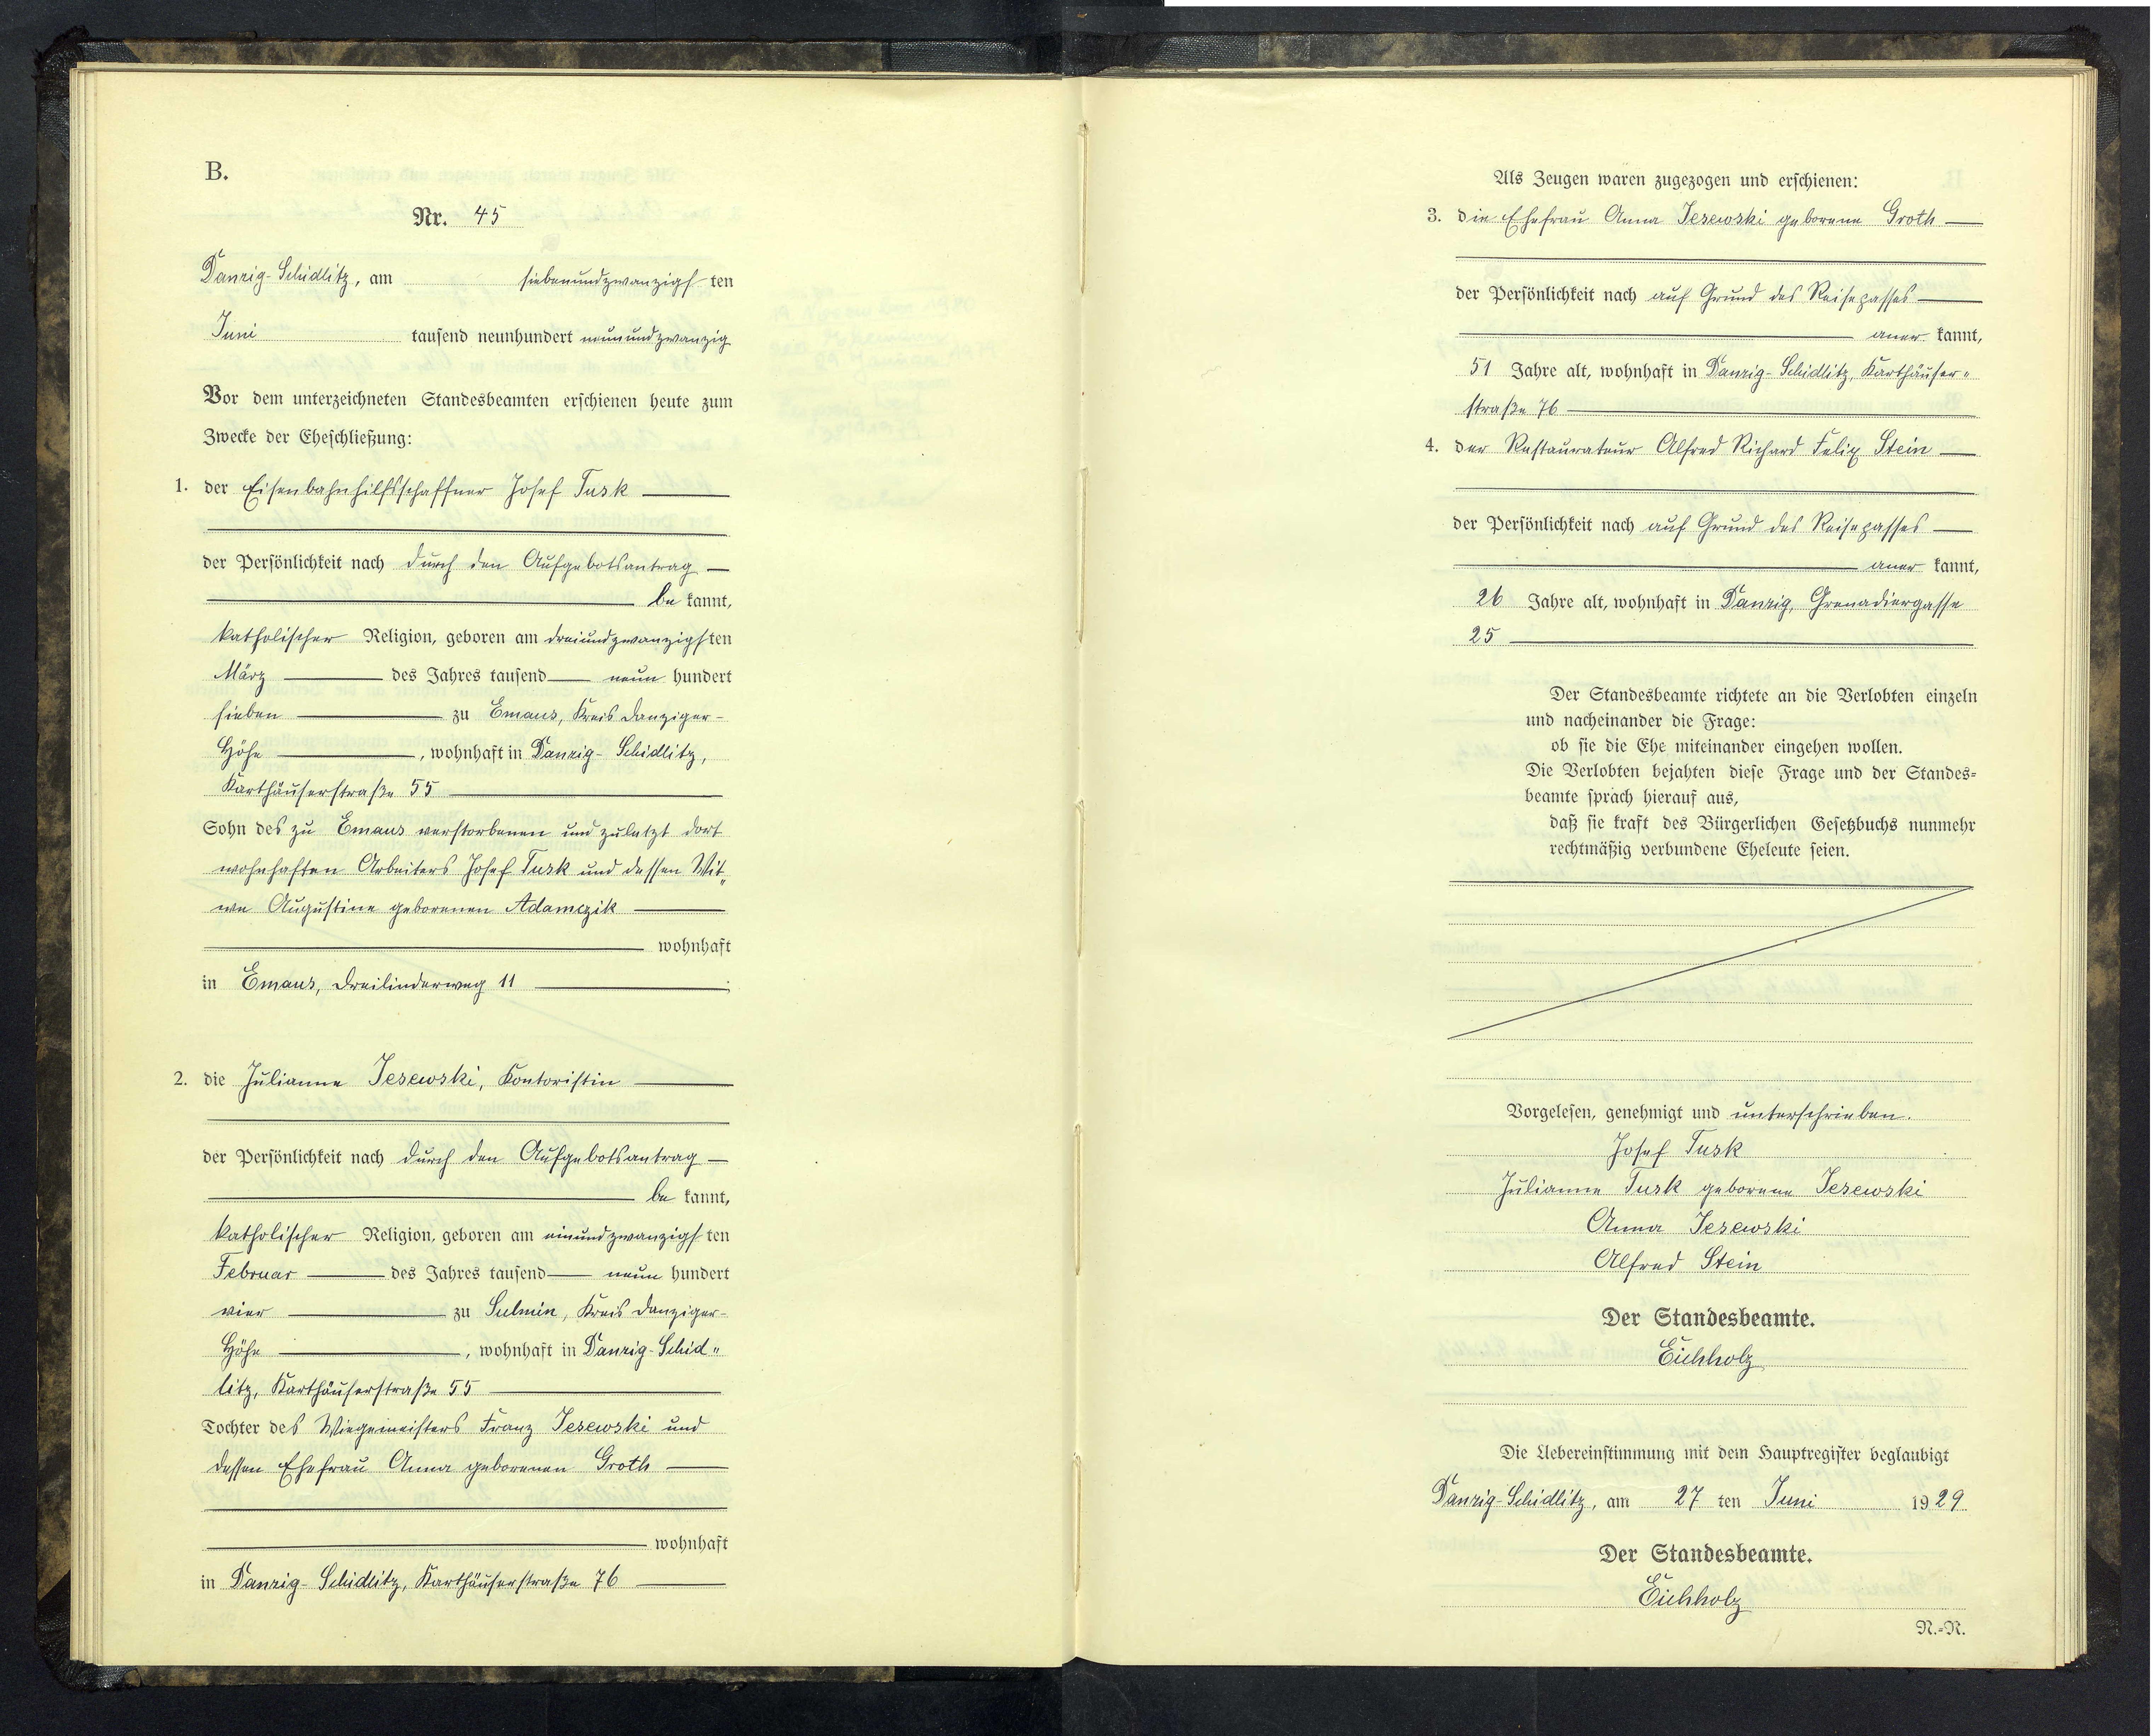 B.
Nr. 45
Danzig-Schidlitz, am siebenundzwanzigsten
Juni tausend neunhundert neunundzwanzig
Vor dem unterzeichneten Standesbeamten erschienen heute zum
Zwecke der Eheschließung:
1. der Eisenbahnhilfsschaffner Josef Tusk
der Persönlichkeit nach durch den Aufgebotsantrag
be kannt,
katholischer Religion, geboren am dreiundzwanzigsten
März des Jahres tausend neun hundert
sieben zu Emaus, Kreis Danziger-
Höhe, wohnhaft in Danzig-Schidlitz,
Karthäuserstraße 55
Sohn des zu Emaus verstorbenen und zuletzt dort
wohnhaften Arbeiters Josef Tusk und dessen Wit„
we Augustine geborenen Adamczik
wohnhaft
in Emaus, Dreilinderweg 11 ;
2. die Julianne Jesewski, Kontoristin
der Persönlichkeit nach durch den Aufgebotsantrag
be kannt,
katholischer Religion, geboren am einundzwanzigsten
Februar des Jahres tausend neun hundert
vier zu Sulmin, Kreis Danziger-
Höhe, wohnhaft in Danzig-Schid„
litz, Karthäuserstraße 55
Tochter des Wiegemeisters Franz Jesewski und
dessen Ehefrau Anna geborenen Groth
wohnhaft
in Danzig-Schidlitz, Karthäuserstraße 76
Als Zeugen waren zugezogen und erschienen:
3. die Ehefrau Anna Jesewski geborene Groth
der Persönlichkeit nach auf Grund des Reisepasses
aner kannt,
51 Jahre alt, wohnhaft in Danzig-Schidlitz, Karthäuser„
straße 76
4. der Restaurateur Alfred Richard Felix Stein
der Persönlichkeit nach auf Grund des Reisepasses
aner kannt,
26 Jahre alt, wohnhaft in Danzig, Grenadiergasse
25
Der Standesbeamte richtete an die Verlobten einzeln
und nacheinander die Frage:
ob sie die Ehe miteinander eingehen wollen.
Die Verlobten bejahten diese Frage und der Standes=
beamte sprach hierauf aus,
daß sie kraft des Bürgerlichen Gesetzbuchs nunmehr
rechtmäßig verbundene Eheleute seien.
Vorgelesen, genehmigt und unterschrieben.
Josef Tusk
Julianne Tusk geborene Jesewski
Anna Jesewski
Alfred Stein
Der Standesbeamte.
Eichholz
Die Uebereinstimmung mit dem Hauptregister beglaubigt
Danzig-Schidlitz, am 27 ten Juni 1929
Der Standesbeamte.
Eichholz
N.=R.